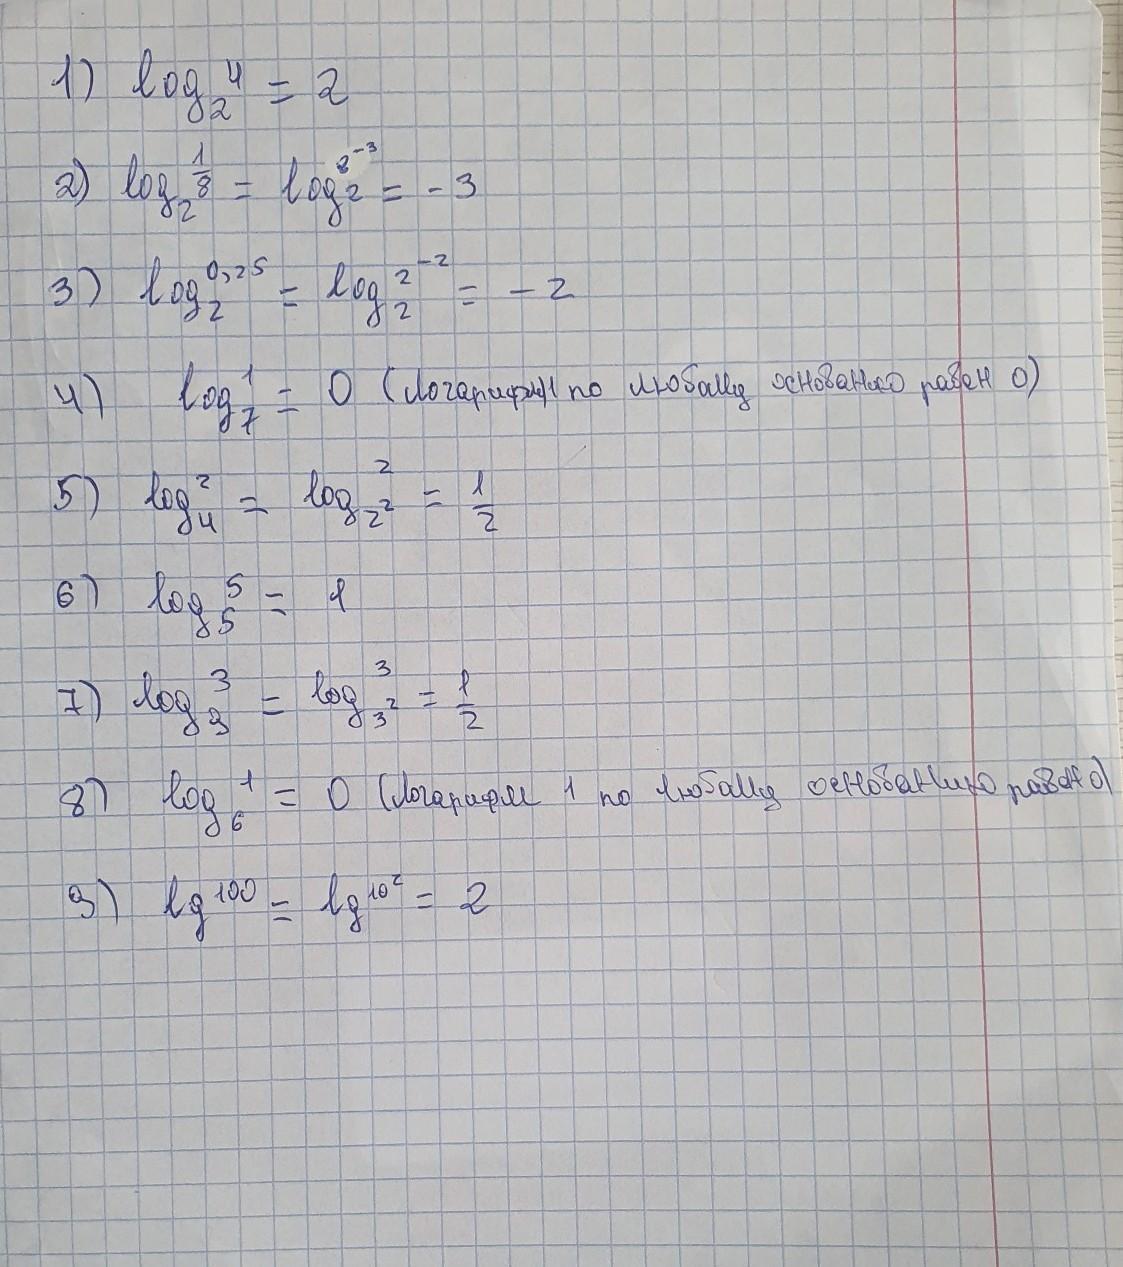 1) log₂ 4 = 2
2) log₂ 1/8 = log₂ 8⁻³ = - 3
3) log₂ 0,25 = log₂ 2⁻² = - 2
4) log₇ 1 = 0 (Логарифм 1 по любому основанию равен 0)
5) log₄ 2 = log₂² 2 = 1/2
6) log₅ 5 = 1
7) log₉ 3 = log₃² 3 = 1/2
8) log₆ 1 = 0 (Логарифм 1 по любому основанию равен 0)
9) lg 100 = lg 10² = 2